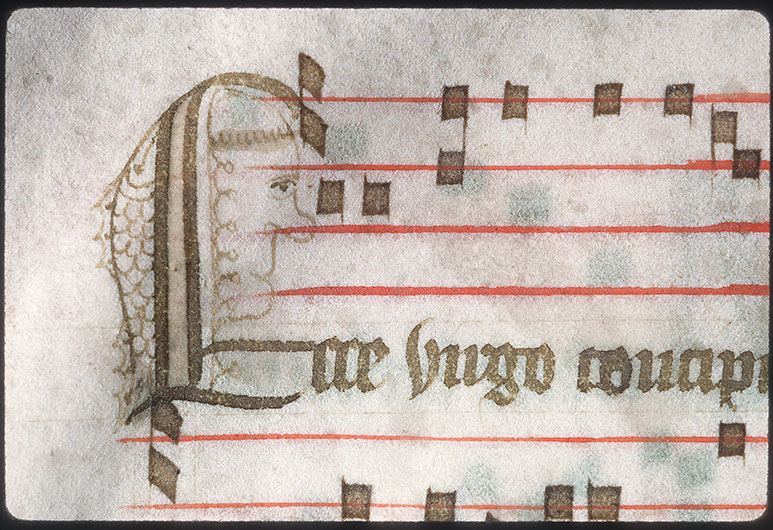 Ecce virgo concipi